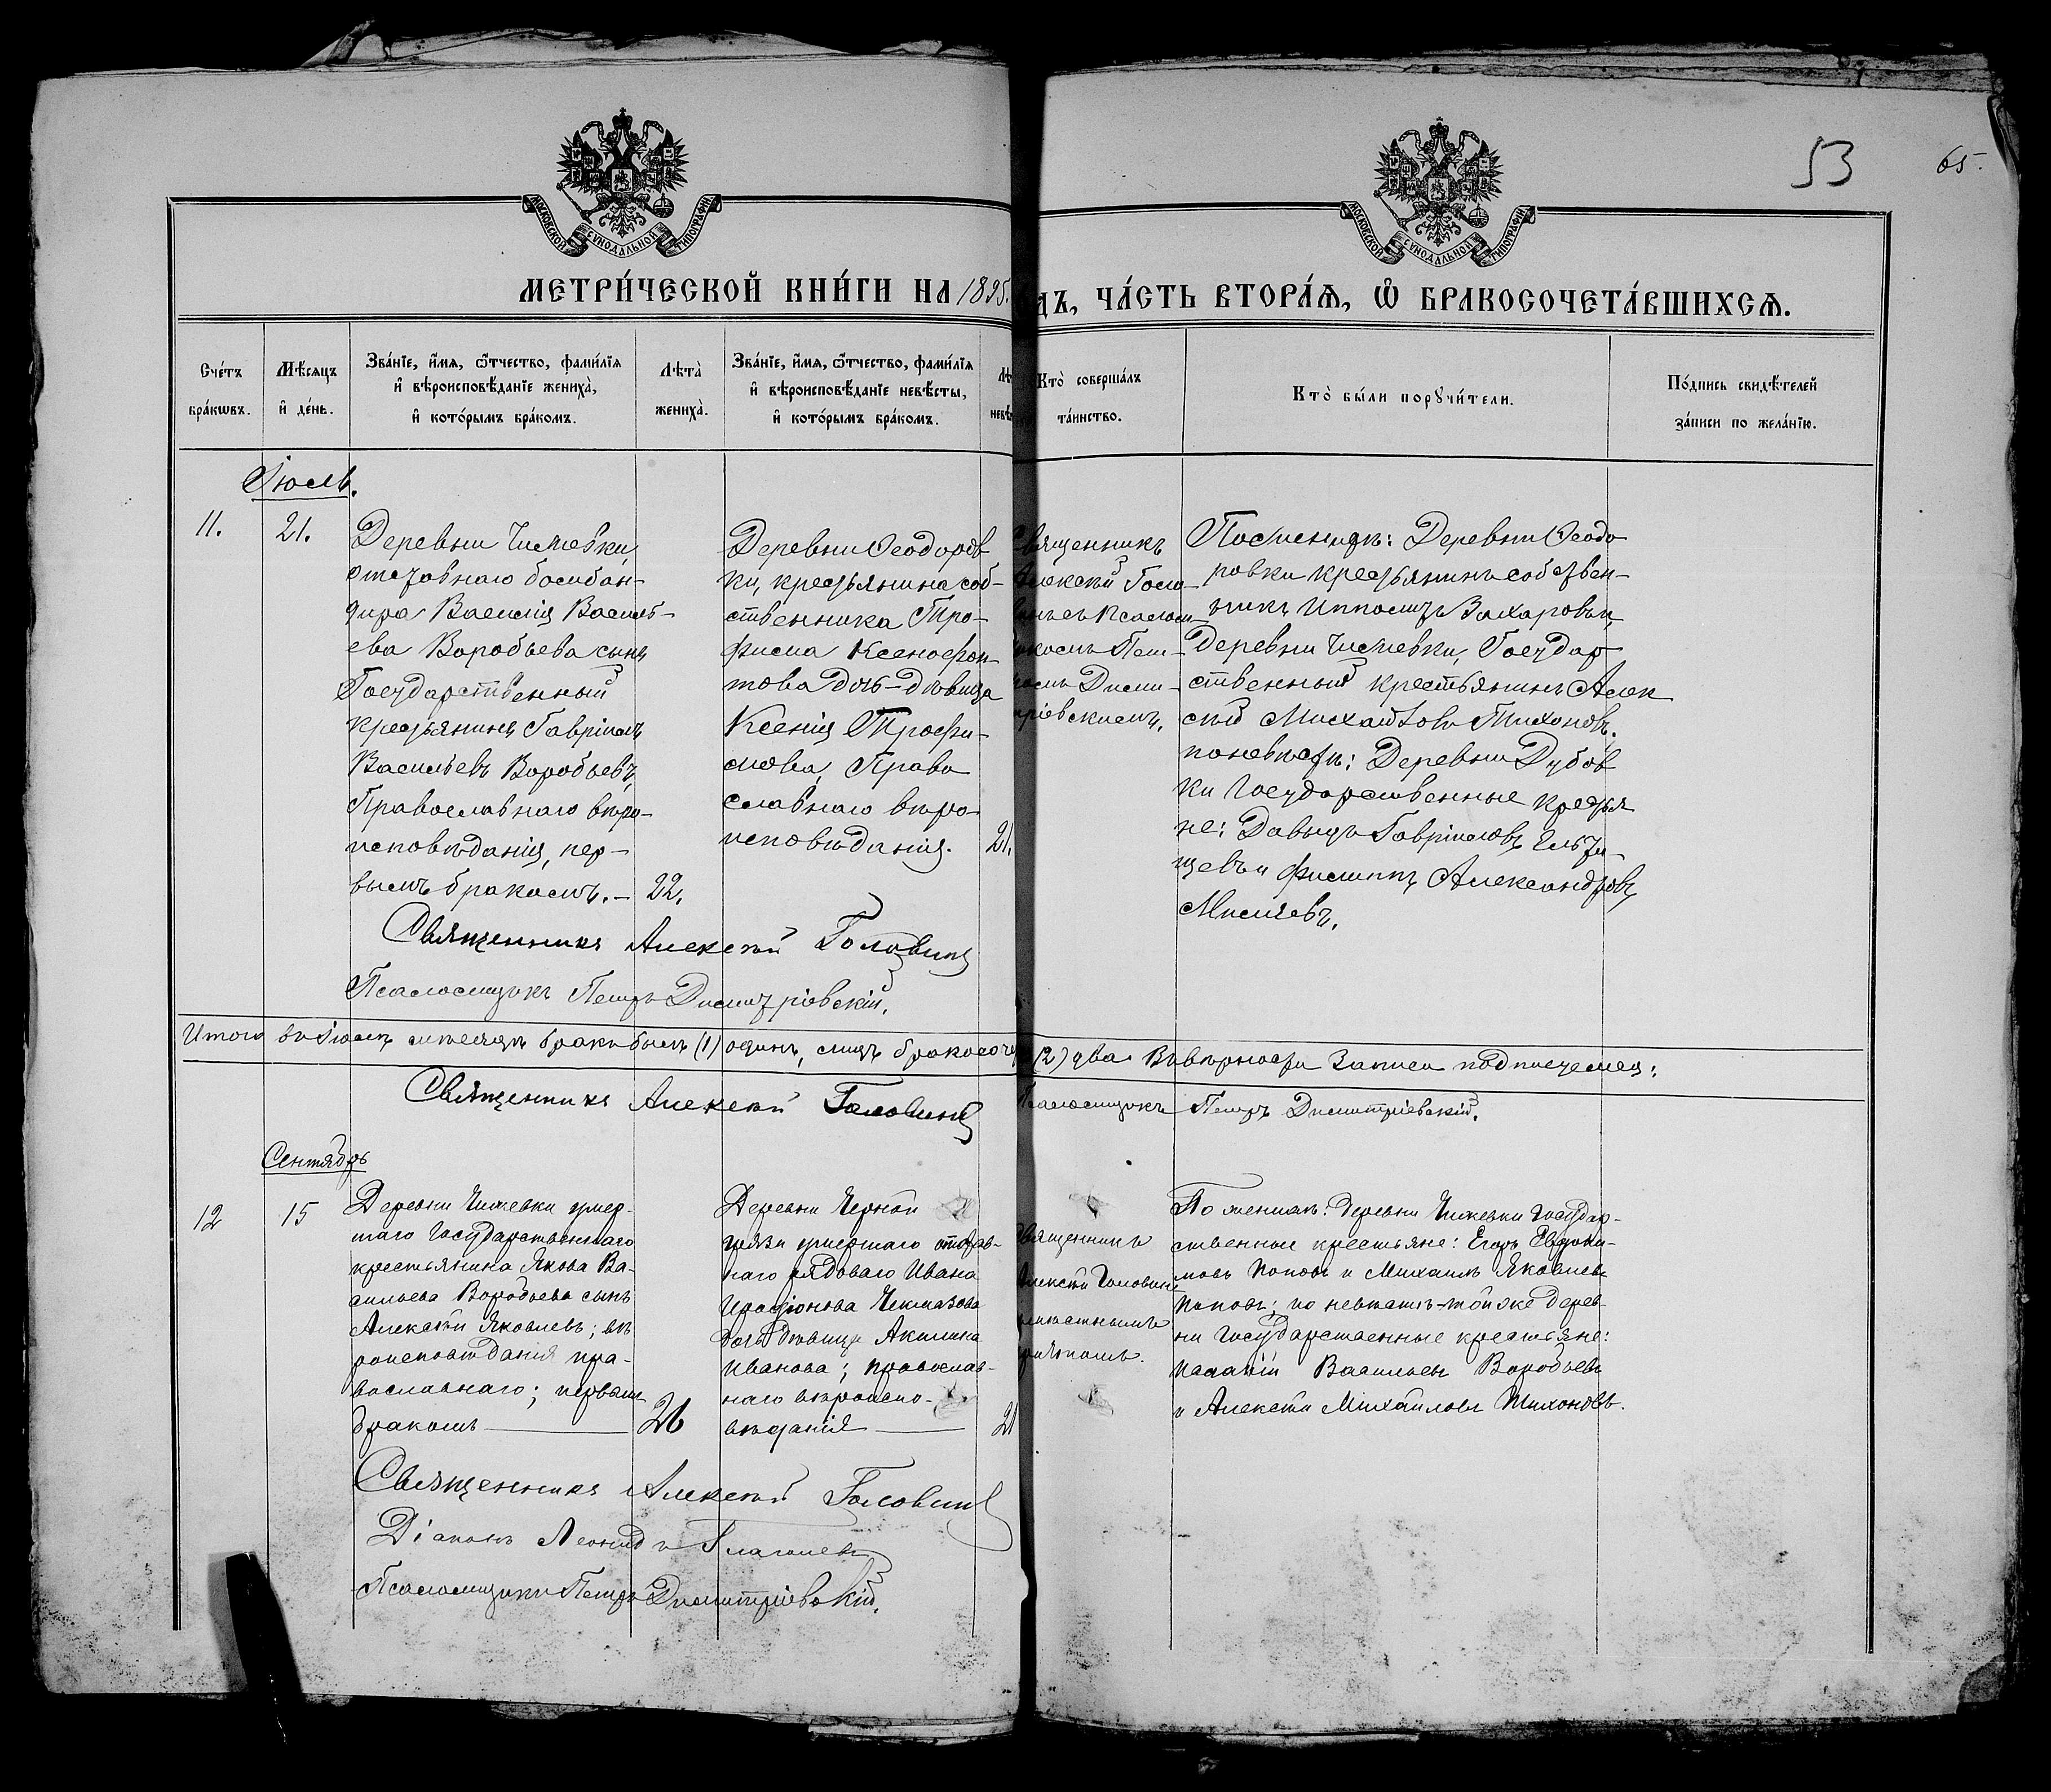 53
65.
МОСКОВСКОЙ СѴНОДАЛЬНОЙ ТИПОГРАФІИ
МОСКОВСКОЙ СѴНОДАЛЬНОЙ ТИПОГРАФІИ
МЕТРИ́ЧЕСКОЙ КНИ́ГИ НА 1895.
ДЪ, ЧА́СТЬ ВТОРА́Ѧ, Ѽ БРАКОСОЧЕТА́ВШИХСѦ.
Сче́тъ
бра́кѡвъ.
Мѣ́сяцъ
и҆ де́нь.
Зва́нїе, и҆́мѧ, ѻ҆́тчество, фами́лїѧ
и҆ вѣроисповѣ́данїе жениха̀,
и҆ кото́рымъ бра́комъ.
Лѣта̀
жениха̀.
Зва́нїе, и҆́мѧ, ѻ҆́тчество, фами́лїѧ
и҆ вѣроисповѣ́данїе невѣ́сты,
и҆ кото́рымъ бра́комъ.
Лѣ
невѣ
Кто̀ соверша́лъ
та́инство.
Кто̀ бы́ли порꙋчи́тели.
По́дпись свидѣ́телей
за́писи по жела́нїю.
Іюль.
11.
21.
Деревни Чижевки,
отставнаго бомбан-
дира Василія Василь-
ева Воробьева сынъ
Государственный
крестьянинъ Гавріилъ
Васильевъ Воробьевъ,
Православнаго вѣро-
исповѣданія, пер-
вымъ бракомъ. –
22.
Деревни Ѳеодоров
ки, крестьянина соб-
ственника Тро-
фима Ксенофон-
това дочь-дѣвица
Ксенія Трофи-
мова, Право
славнаго вѣро-
исповѣданія.
21.
Священникъ
Алексѣй Голо-
винъ съ Псалом-
щикомъ Пет-
ромъ Дими-
тріевскимъ.
По женихѣ: Деревни Ѳеодо
ровки крестьянинъ собствен-
никъ Ипполитъ Захаровъ и
Деревни Чижевки, Государ
ственный крестьянинъ Алек
сѣй Михайловъ Тихоновъ.
по невѣстѣ: Деревни Дубов
ки Государственные крестья
не: Давыдъ Гавріиловъ
и Филиппъ Александровъ
Священникъ Алексѣй Головинъ
Псаломщикъ Петръ Димитріевскій.
Итого въ Іюлѣ мѣсяцѣ бракъ былъ (1) одинъ, лицъ бракосоч (2) два. Въ вѣрности записи подписуемся:
Священникъ Алексѣй Головинъ
Псаломщикъ Петръ Димитріевскій.
Сентябрь
12
15
Деревни Чижевки умер-
шаго Государственнаго
крестьянина Якова Ва-
сильева Воробьева сынъ
Алексѣй Яковлевъ; вѣ
роисповѣданія пра-
вославнаго; первымъ
бракомъ
26
Деревни Черной
грязи умершаго отстав-
наго рядоваго Ивана
Иродіонова Чекмазова
дочь дѣвица Акилина
Иванова; православ-
наго вѣроиспо-
вѣданія
21
Священникъ
Алексѣй Головинъ
съ мѣстнымъ
причтомъ.
По женихѣ: деревни Чижевки Государ-
ственные крестьяне: Егоръ Евдоки-
мовъ Поповъ и Михаилъ Яковлевъ
Поповъ; по невѣстѣ-той же дерев-
ни Государственные крестьяне:
Василій Васильевъ Воробьевъ
и Алексѣй Михайловъ Тихоновъ.
Священникъ Алексѣй Головинъ
Діаконъ Леонидъ Глаголевъ
Псаломщикъ Петръ Димитріевскій.